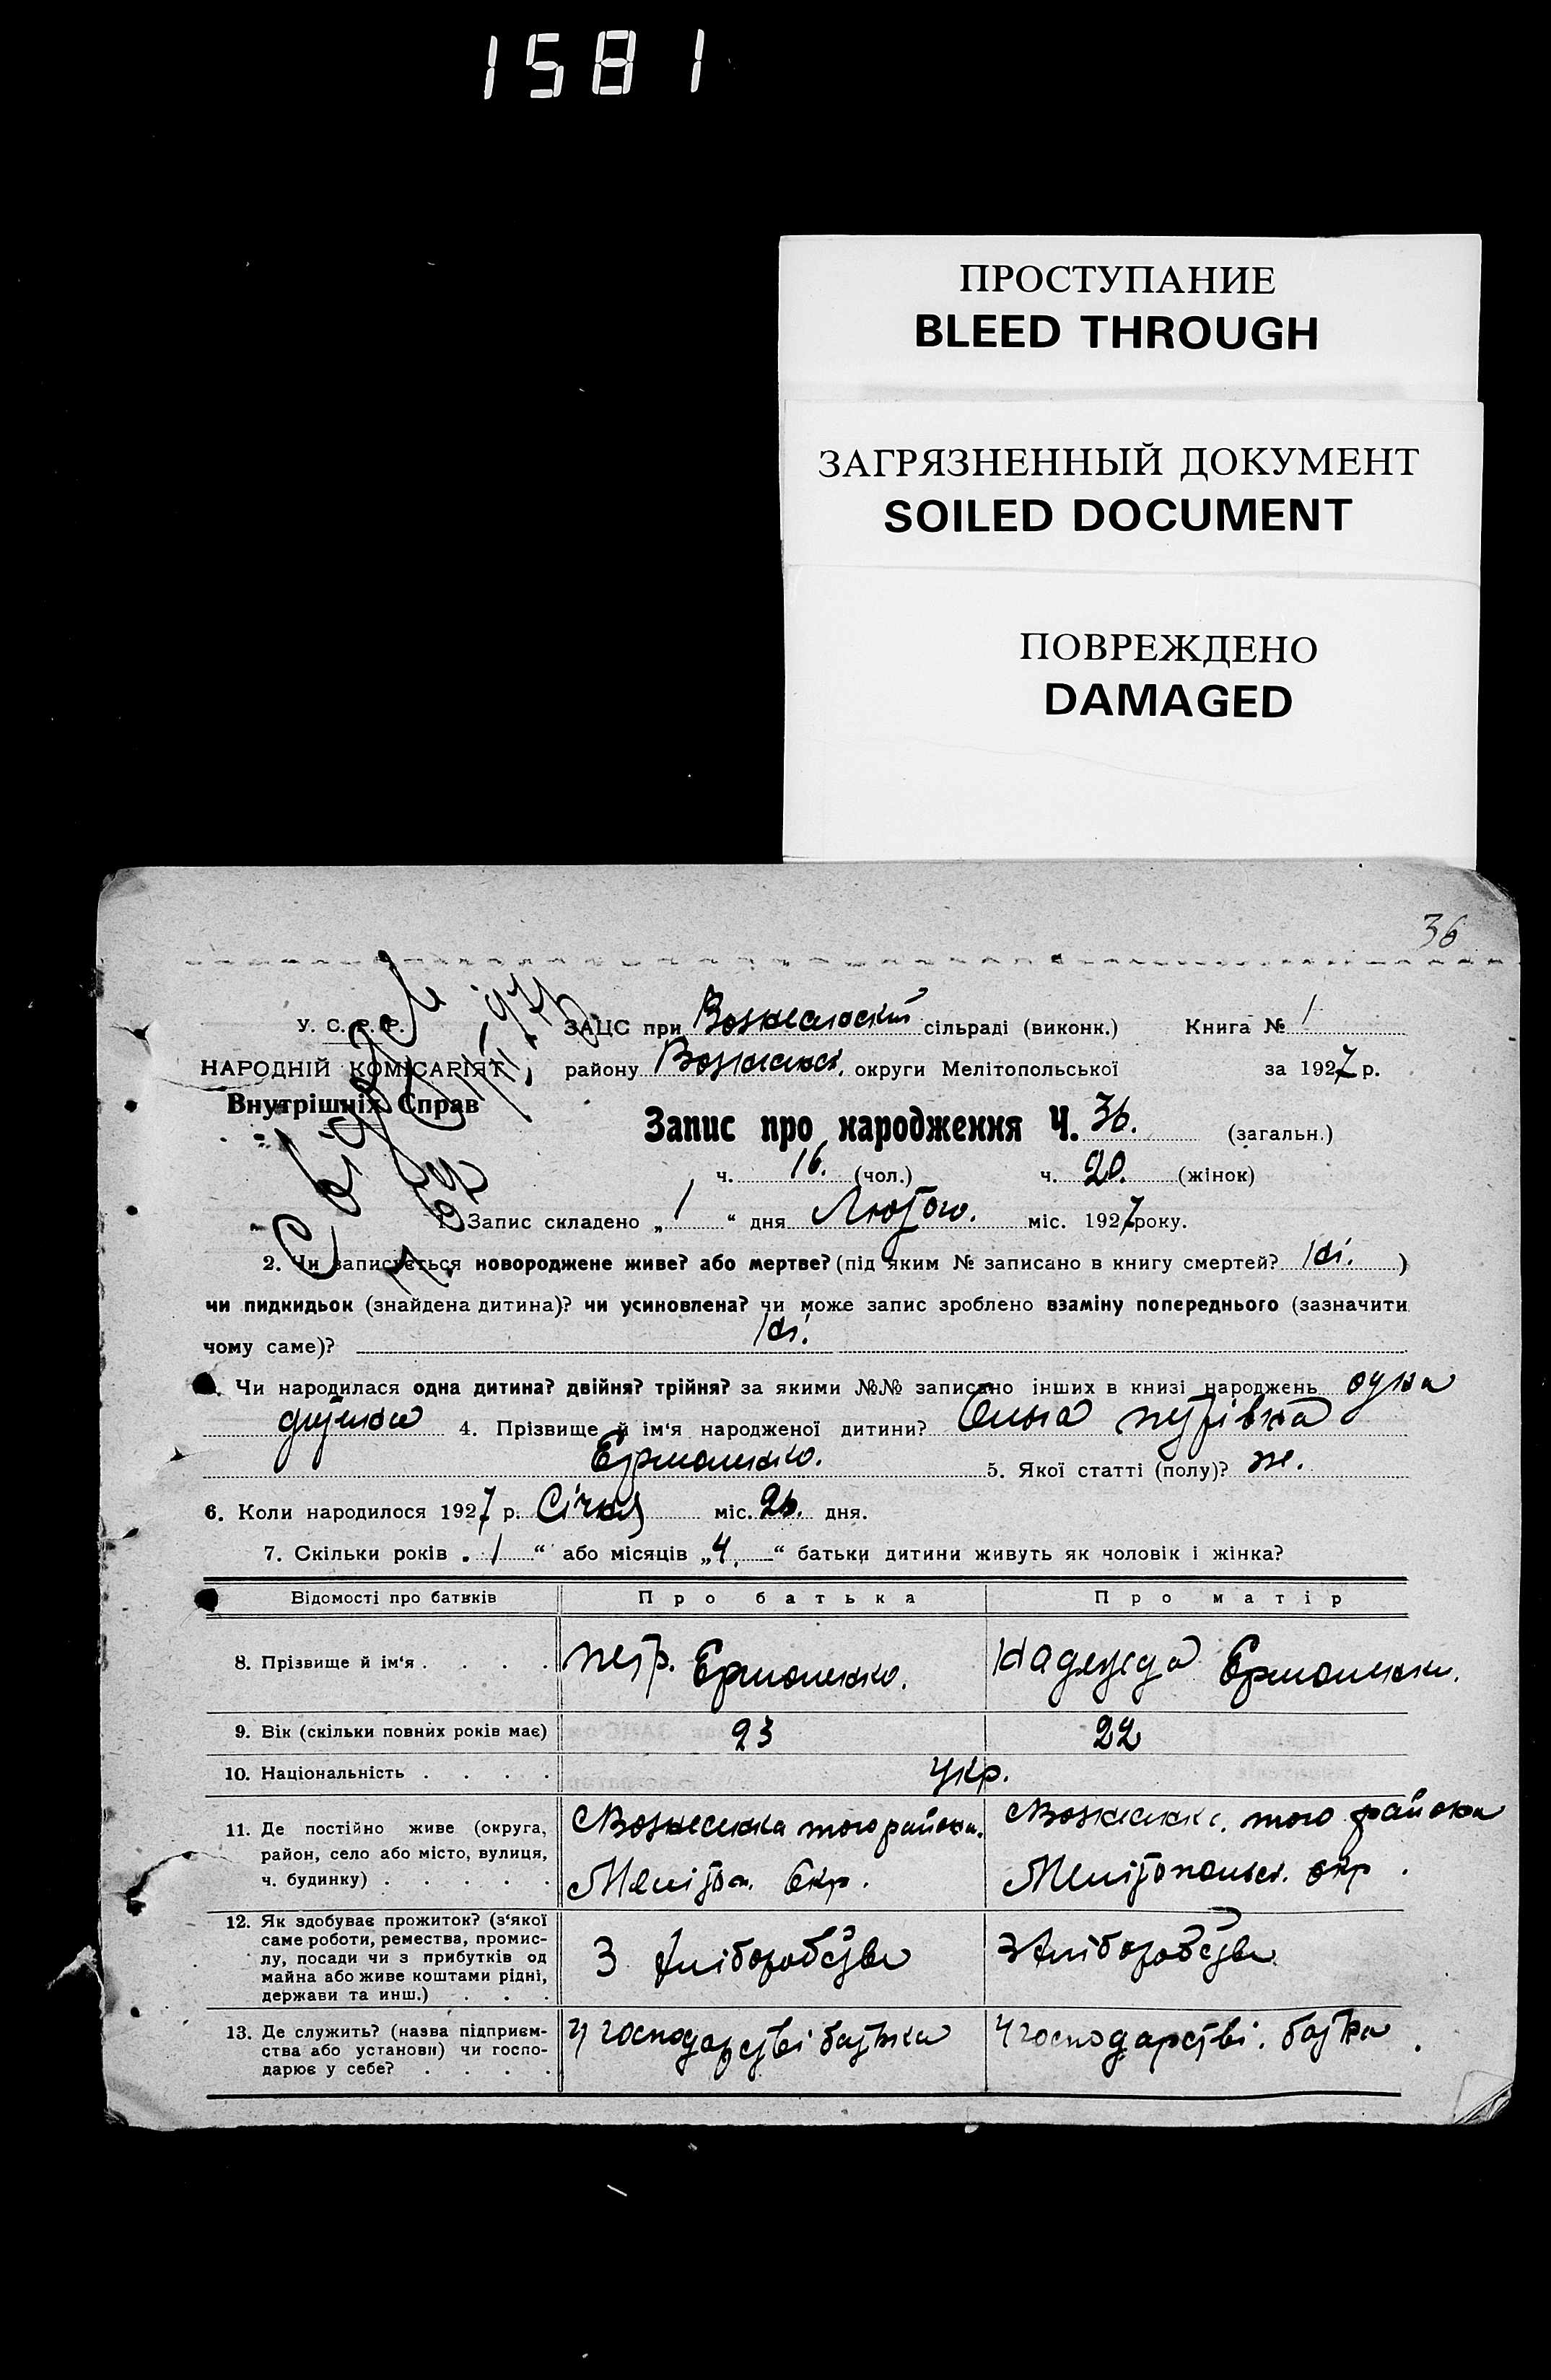 1581
ПРОСТУПАНИЕ
BLEED THROUGH
ЗАГРЯЗНЕННЫЙ ДОКУМЕНТ
SOILED DOCUMENT
ПОВРЕЖДЕНО
DAMAGED
36
У. С. Р. Р.
НАРОДНІЙ КОМІСАРІЯТ
Внутрішніх Справ
ЗАЦС при Вознесенскій сільраді (виконк.) Книга № 1
району Вознесенск. округи Мелітопольської за 1927 р.
Запис про народження Ч. 36. (загальн.)
ч. 16. (чол.) ч. 20. (жінок)
1. Запис складено „ 1 “ дня Лютого. міс. 1927 року.
2. Чи записується новороджене живе? або мертве? (під яким № записано в книгу смертей? Ні. )
чи пидкидьок (знайдена дитина)? чи усиновлена? чи може запис зроблено взаміну попереднього (зазначити
чому саме)? Ні.
Чи народилася одна дитина? двійня? трійня? за якими №№ записано інших в книзі народжень одна
дитина 4. Прізвище й ім'я народженої дитини? Ольга петрівна
Ермоленко. 5. Якої статті (полу)? ж.
6. Коли народилося 1927 р. Січня міс. 26. дня.
7. Скільки років „ 1 “ або місяців „ 4 “ батьки дитини живуть як чоловік і жінка?
Відомості про батьків Про батька Про матір
8. Прізвище й ім'я петр. Ермоленко. Надежда Ермоленко.
9. Вік (скільки повних років має) 23 22
10. Національність укр.
11. Де постійно живе (округа, район, село або місто, вулиця, ч. будинку)
Вознесенка того района.
Меліто. Окр.
Вознесенк. того района
Мелітопольск. окр.
12. Як здобуває прожиток? (з'якої
саме роботи, ремества, промис-
лу, посади чи з прибутків од
майна або живе коштами рідні,
держави та инш.)
З хліборобства
З хліборобства
13. Де служить? (назва підприєм-
ства або установи) чи госпо-
дарює у себе?
У господарстві батька
У господарстві. батька.